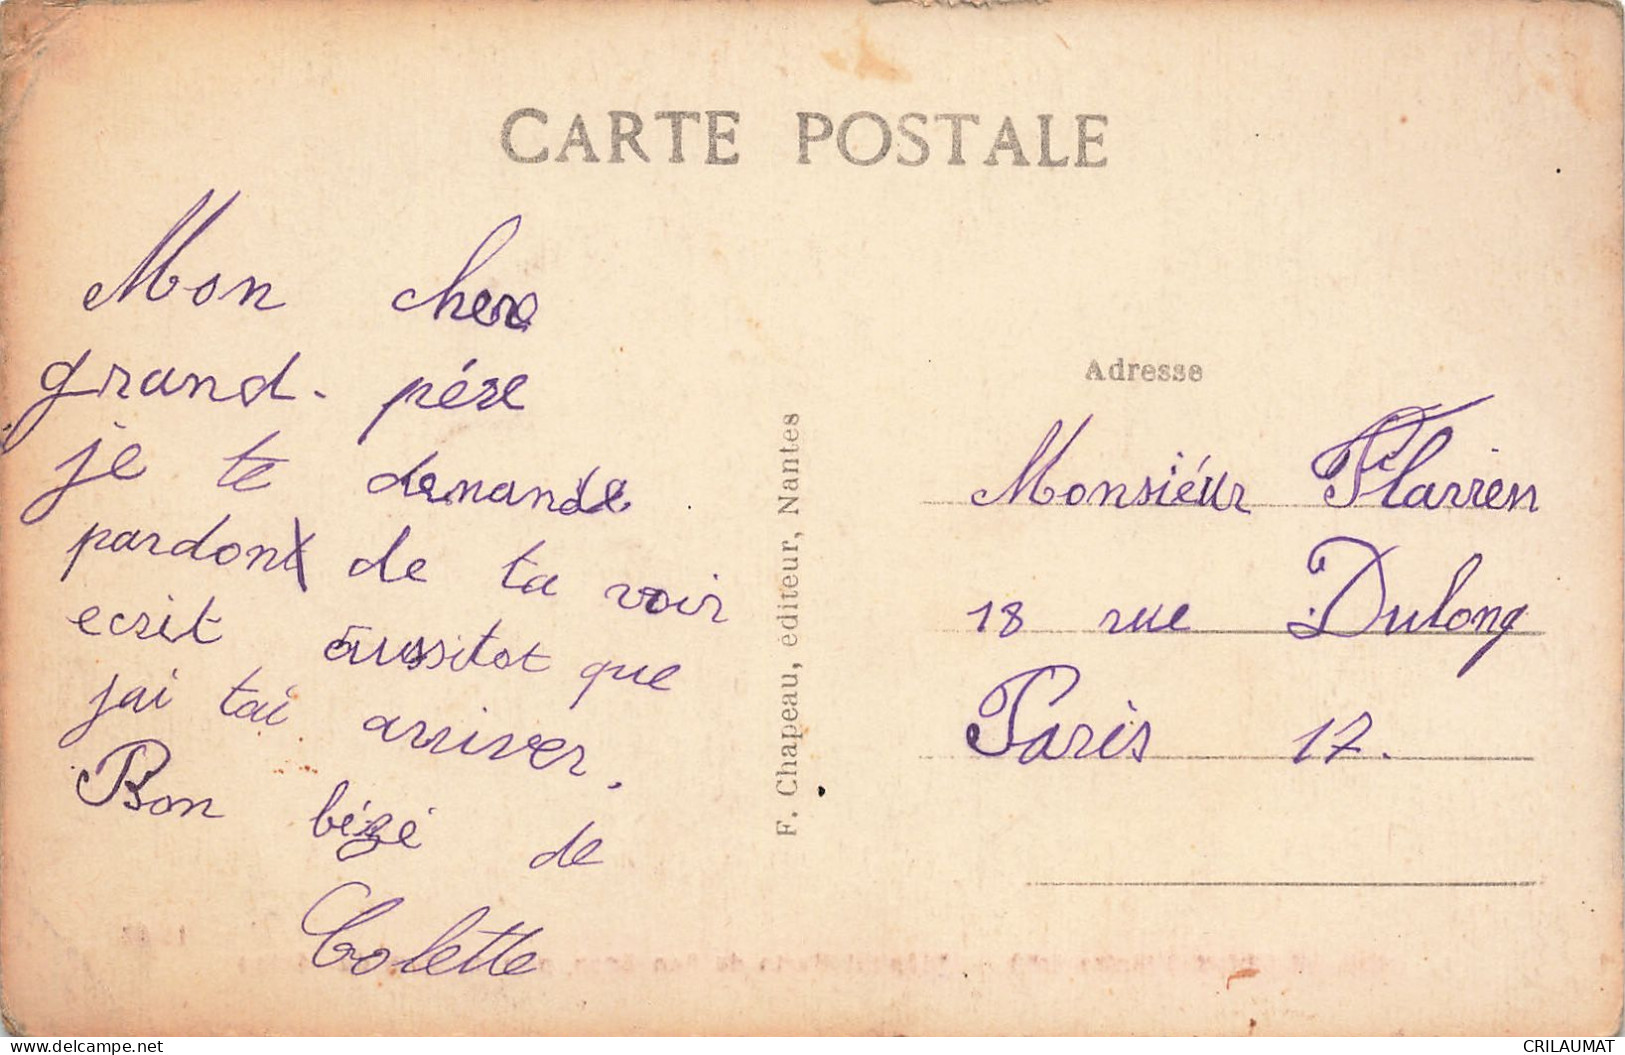 CARTE POSTALE
Mon cher
grand-pére
je te demande
pardon de ta voir
ecrit aussitot que
jai tai arriver.
Bon bézé de
Colette
F. Chapeau, éditeur, Nantes
Adresse
Monsiéur Flavien
18 rue Dulong
Paris 17.
delcampe.net
CRILAUMAT